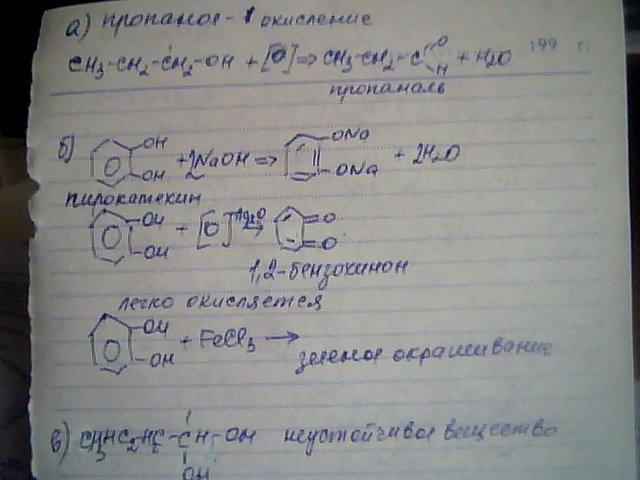 а) пропанол-1 окисление
CH3-CH2-CH2-OH + [O] => CH3-CH2-C O H + H2O 199 г.
пропаналь
б) OH OH + 2NaOH => ONa ONa + 2H2O
пирокатехин
OH OH + [O] Ag2O → O O
1,2-бензохинон
легко окисляется
OH OH + FeCl3 → зеленое окрашивание
в) неустойчивое вещество
OH